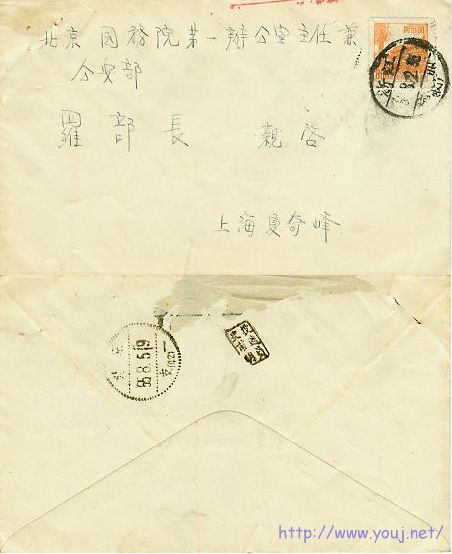 北京国务院第一辦公室主任兼
公安部
羅部長 親啓
上海 奇峰
55.8.5.19
http://www.youj.net/